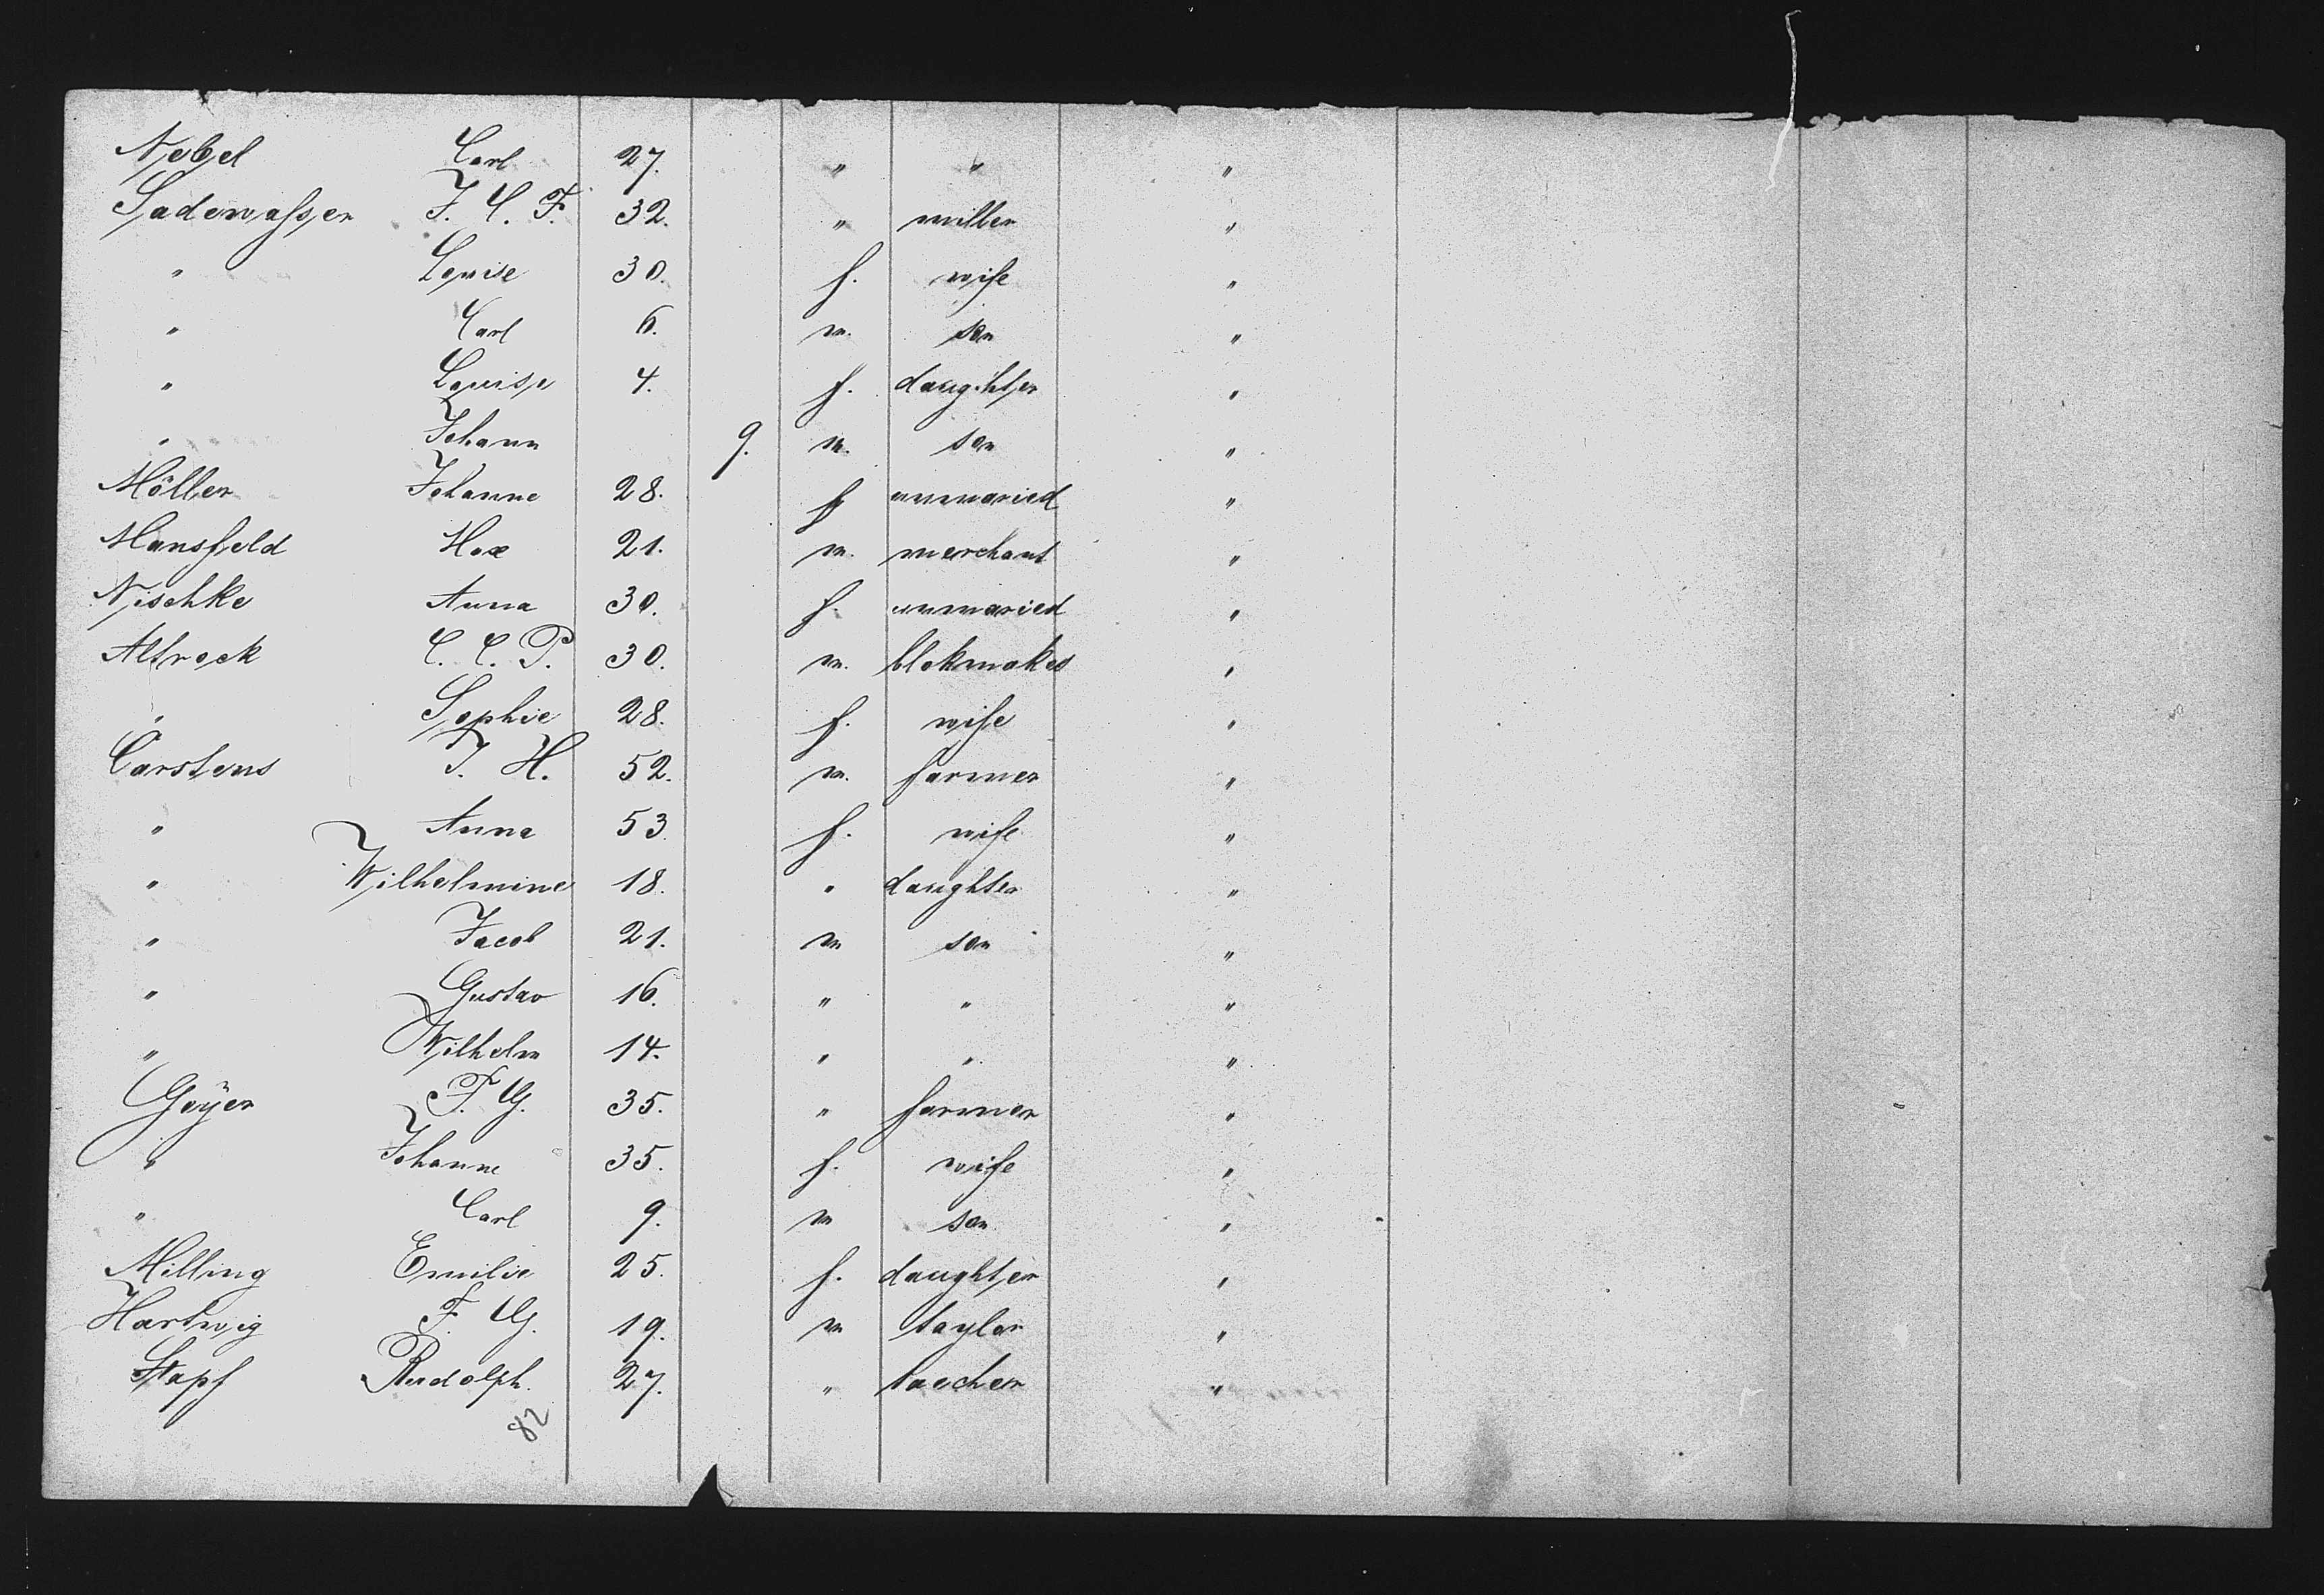 Nebel Carl 27. " " "
Sadewasser J. C. F. 32. " miller "
" Louise 30. f. wife "
" Carl 6. m. son "
" Louise 4. f. daughter "
" Johann 9. m. son "
Möller Johanne 28. f unmaried "
Mansfeld Max 21. m. merchant "
Nischke Anna 30. f. unmaried "
Altrock C. C. P. 30. m. blokmaker "
" Sophie 28. f. wife "
Carstens J. H. 52. m. farmer "
" Anna 53 f. wife "
" Wilhelmine 18. " daughter "
" Jacob 21. m son "
" Gustav 16. " " "
" Wilhelm 14. " " "
Geÿer F. G. 35. " farmer "
" Johanne 35. f. wife "
" Carl 9. m son "
Milling Emilie 25. f. daughter "
Hartwig F. G. 19. m taylor "
Stapf Rudolph. 27. " taecher "
82